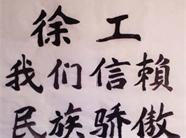 徐工
我们信賴
民族骄傲